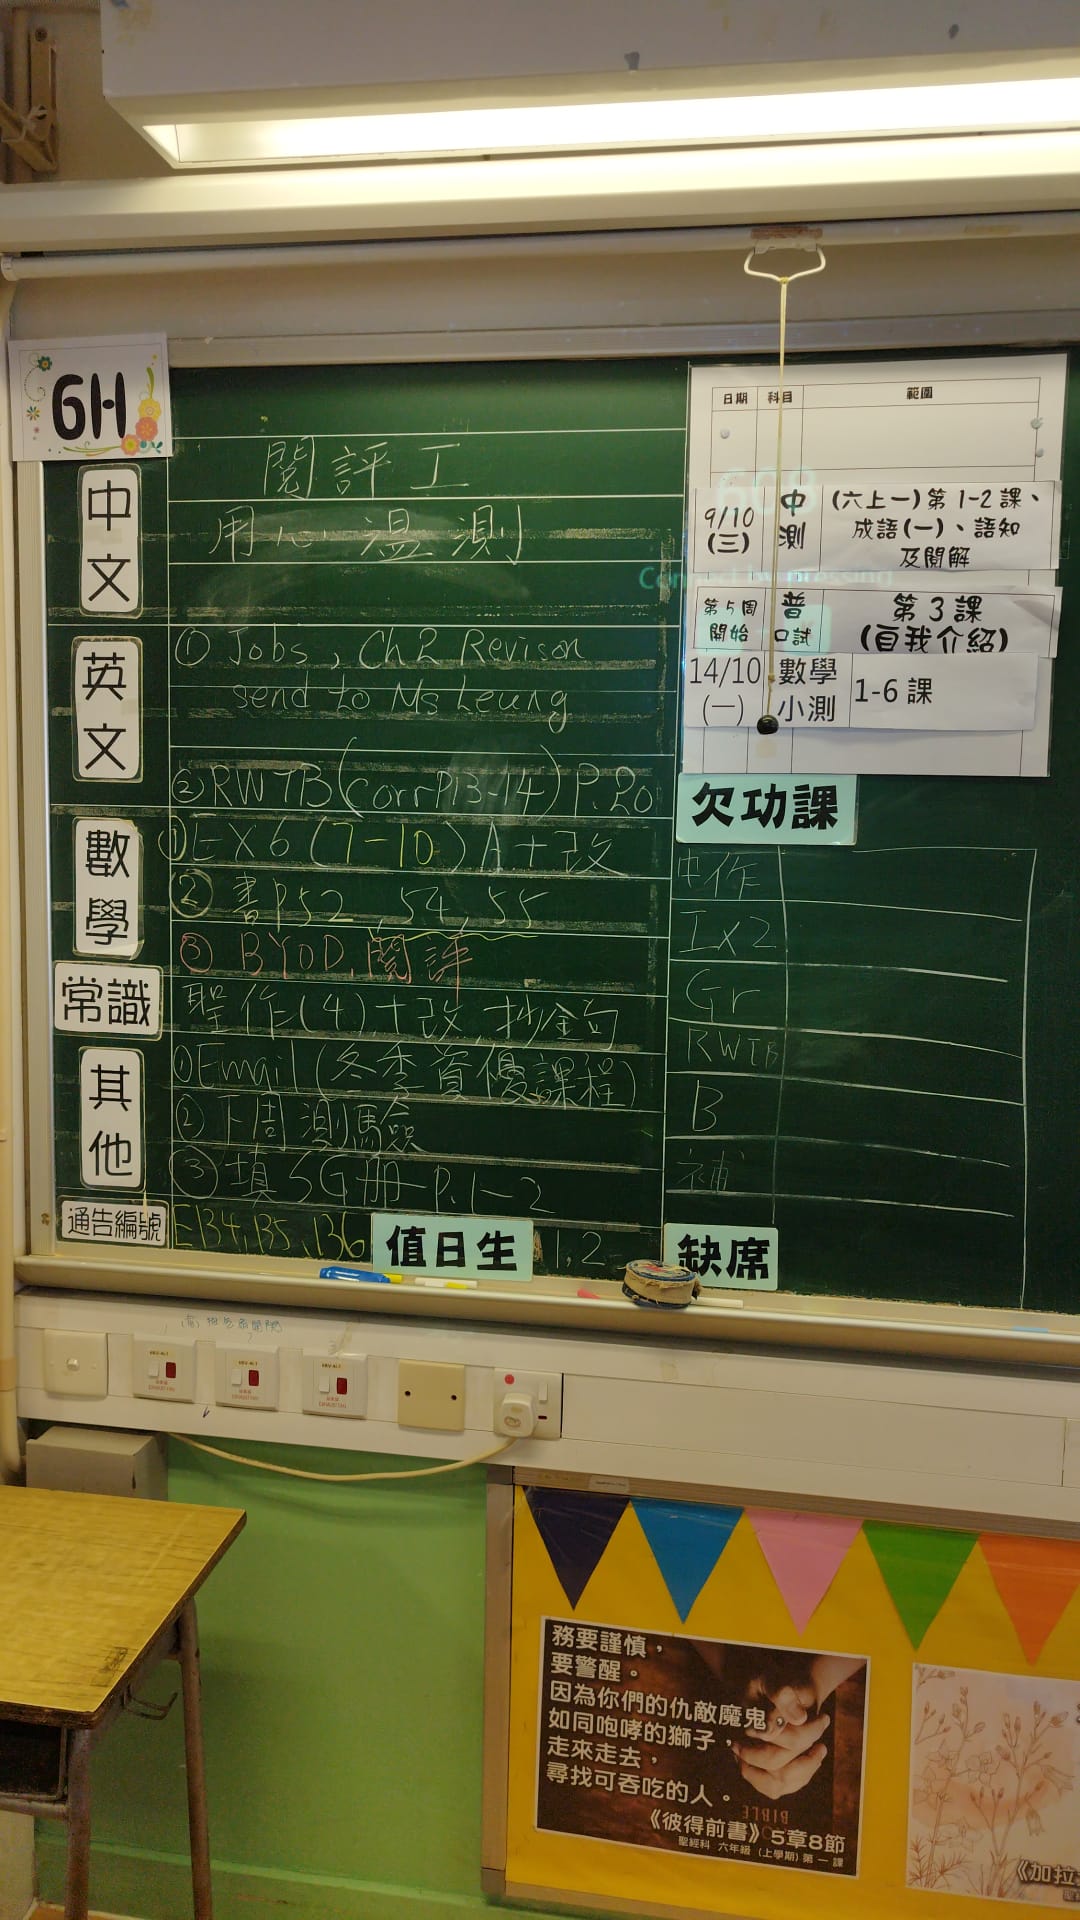 6H
中文
閱評工
用心溫測
英文
① Jobs, Ch2 Revison
send to Ms Leung
② RWTB (corr P13-14) P.20
數學
① EX6 (7-10) A+改
② 書P52, 54, 55
③ BYOD, 閱評
常識
聖作(4)+改 抄金句
其他
① Email (冬季資優課程)
② 下周測驗
③ 填SG册 P.1-2
通告編號
E134, 135, 136
值日生
1, 2
日期 科目 範圍
9/10 (三) 中測 (六上一)第1-2課、成語(一)、語知及閱解
第5周開始 普口試 第3課 (自我介紹)
14/10 (一) 數學小測 1-6課
欠功課
中作
Ex2
Gr
RWTB
B
補
缺席
EXHAUST FAN
EXHAUST FAN
EXHAUST FAN
務要謹慎，
要警醒。
因為你們的仇敵魔鬼，
如同咆哮的獅子，
走來走去，
尋找可吞吃的人。
BIBLE
《彼得前書》5章8節
聖經科 六年級 (上學期) 第一課
《加拉